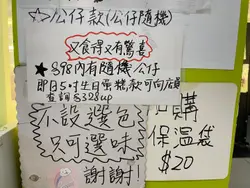 ☆>公仔款(公仔隨機)
又食得又有驚喜
★$98內有隨機公仔
即日5吋生日蛋糕,秋可向店員
查詢$328up
不設選色
只可選味
謝謝!
購
保溫袋
$20